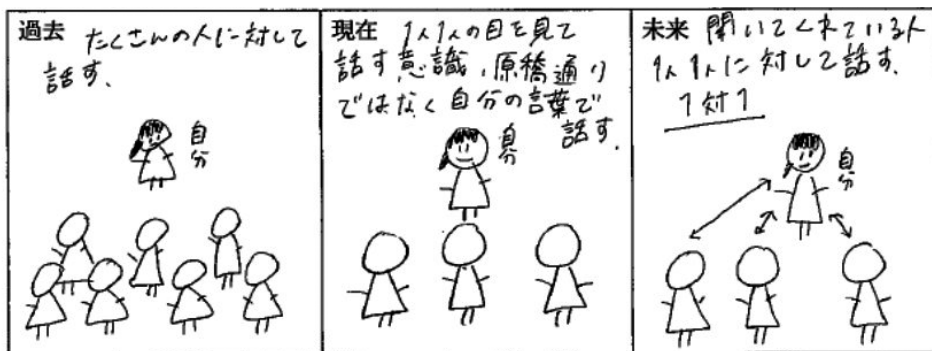 過去 たくさんの人に対して
話す.
自分
現在 1人1人の目を見て
話す意識,原橋通り
ではなく自分の言葉で
話す.
自分
未来 聞いてくれている人
1人1人に対して話す.
1対1
自分